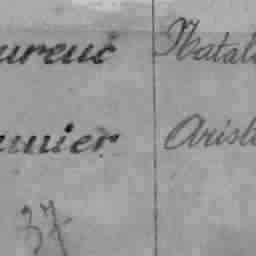 ureuc Natal
unier Arist
37